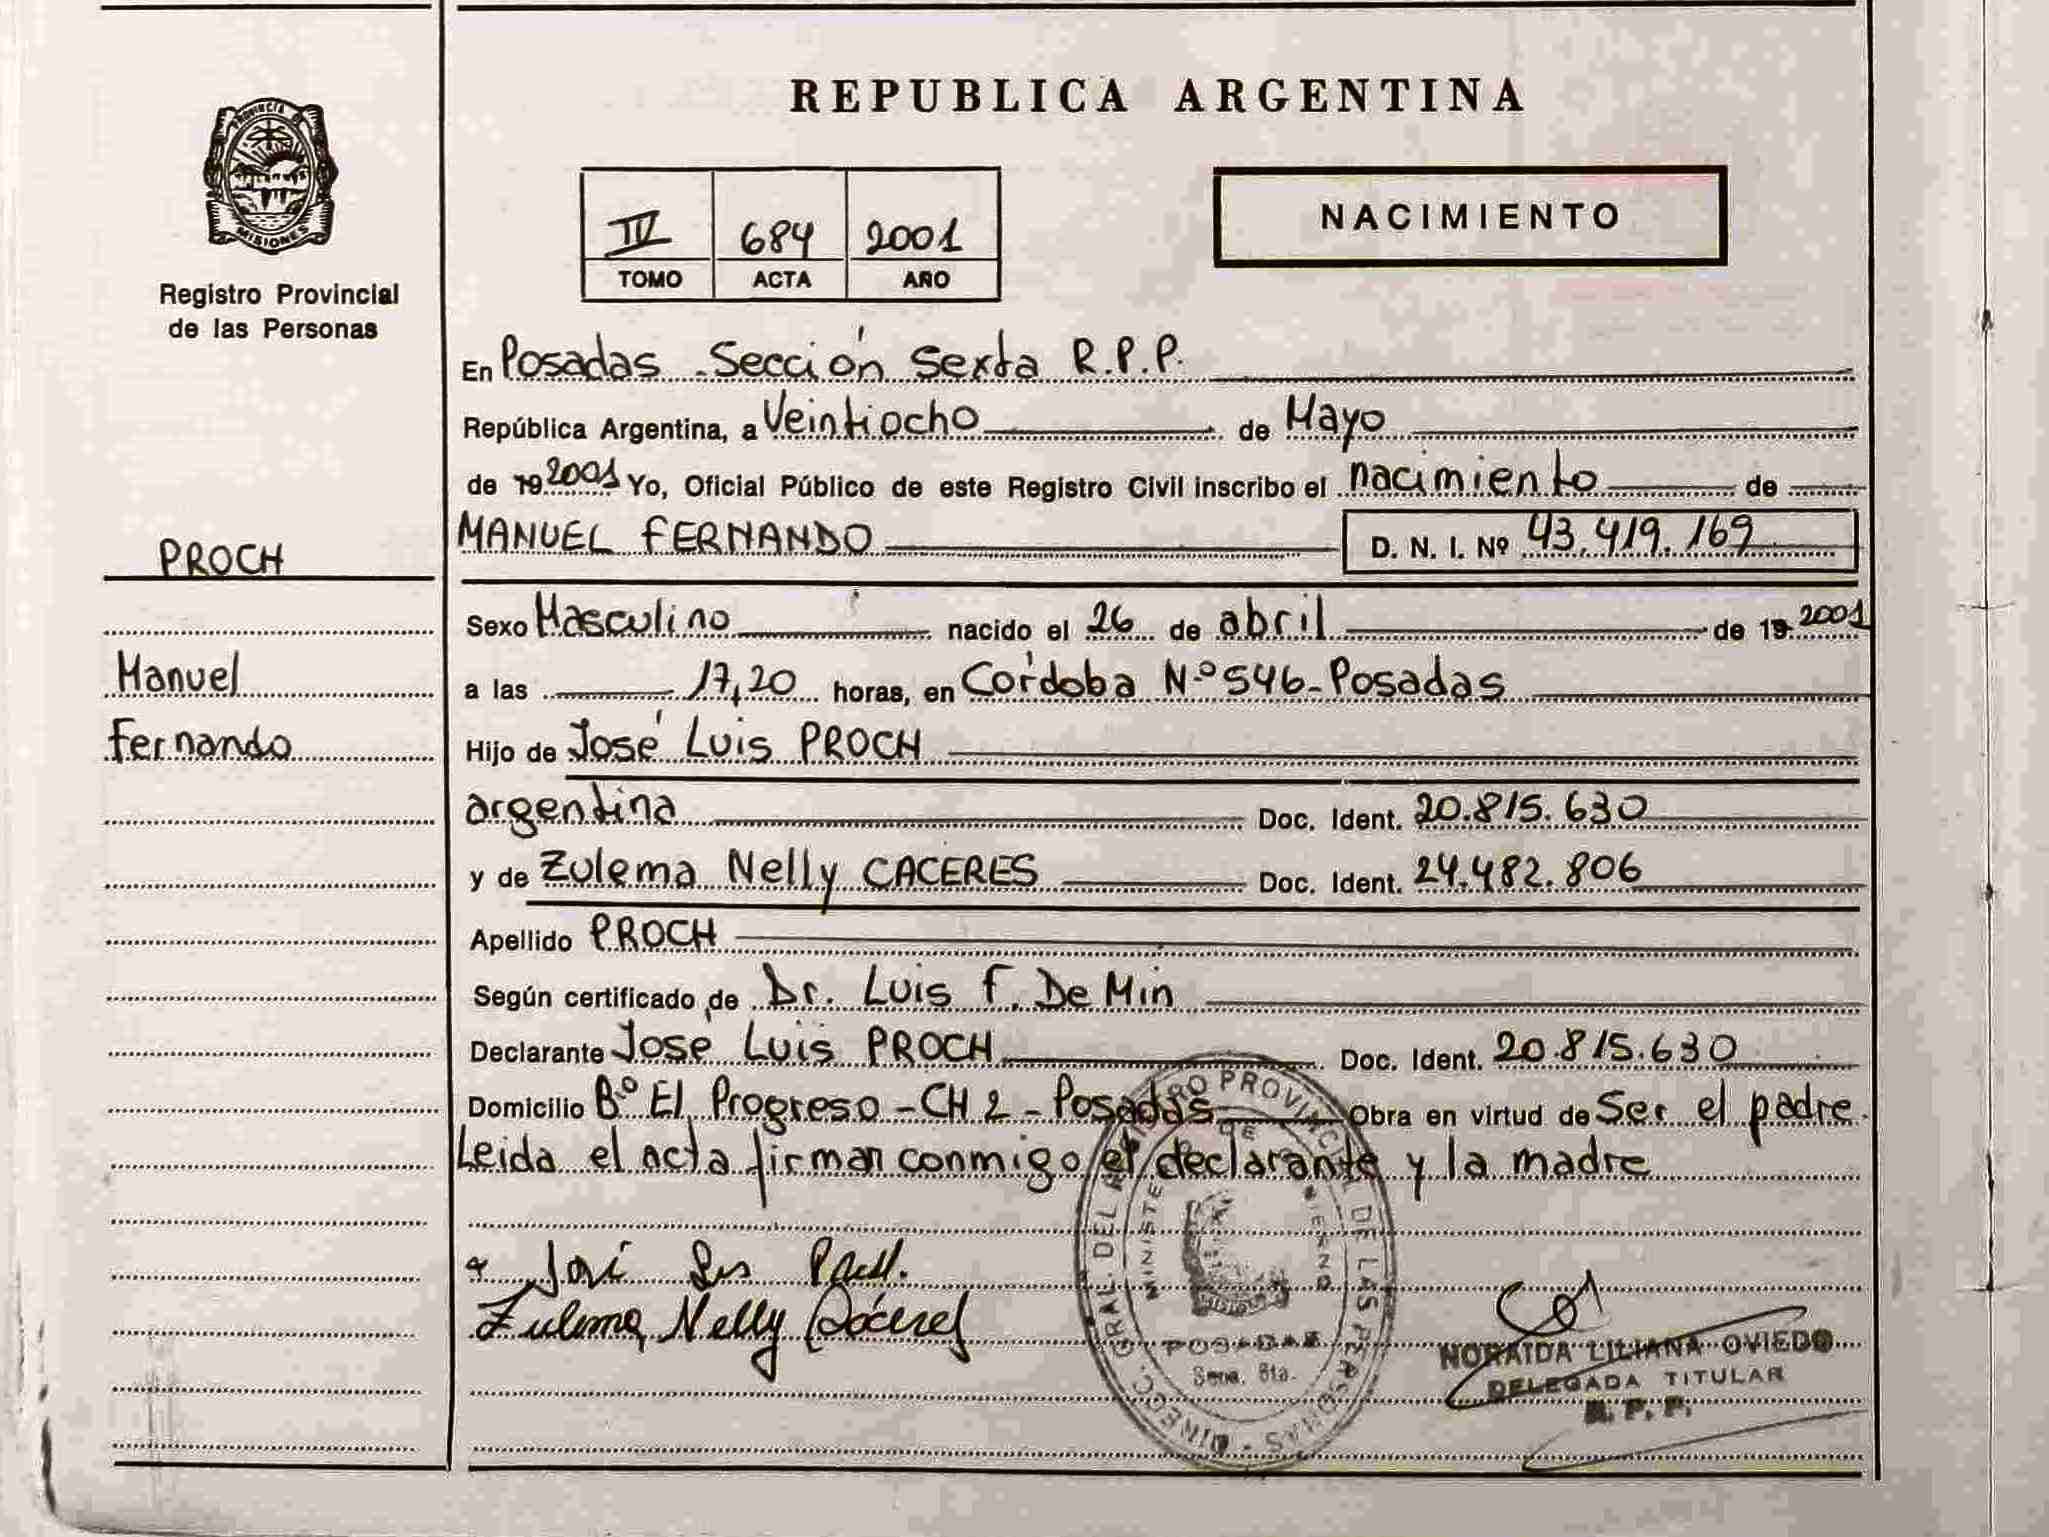 REPUBLICA ARGENTINA
PROVINCIA DE
MISIONES
Registro Provincial
de las Personas
IV 684 2001
TOMO ACTA AÑO
NACIMIENTO
En Posadas - Sección Sexta R.P.P.
República Argentina, a Veintiocho de Mayo
de 19 2001 Yo, Oficial Público de este Registro Civil inscribo el nacimiento de
MANUEL FERNANDO D. N. I. Nº 43.419.169
PROCH
Manuel
Fernando
Sexo Masculino nacido el 26 de abril de 19 2001
a las 17,20 horas, en Córdoba N.º 546-Posadas
Hijo de José Luis PROCH
argentina Doc. Ident. 20.815.630
y de Zulema Nelly CACERES Doc. Ident. 24.482.806
Apellido PROCH
Según certificado de Dr. Luis F. De Min
Declarante José Luis PROCH Doc. Ident. 20.815.630
Domicilio B.º El Progreso - CH 2 - Posadas Obra en virtud de Ser el padre.
Leida el acta firman conmigo el declarante y la madre
Zulema Nelly Cáceres
DIREC. GRAL. DEL REGISTRO PROVINCIAL DE LAS PERSONAS
POSADAS
Secc. 6ta.
NORAIDA LILIANA OVIEDO
DELEGADA TITULAR
R. P. P.